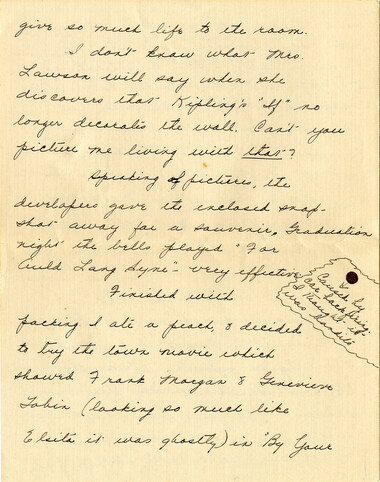 give so much life to the room.
I don't know what Mrs.
Lawson will say when she
discovers that Kipling's "If" no
longer decorates the wall. Can't you
picture me living with that?
Speaking of pictures, the
developers gave the inclosed snap-
shot away for a souvenir. Graduation
night the bells played "For
Auld Lang Syne" - very effective
Finished with
packing I ate a peach, & decided
to try the town movie which
showed Frank Morgan & Genevieve
Tobin (looking so much like
Elsita it was ghostly) in "By Your
Caused by
car backfiring.
I thought it
was bandits